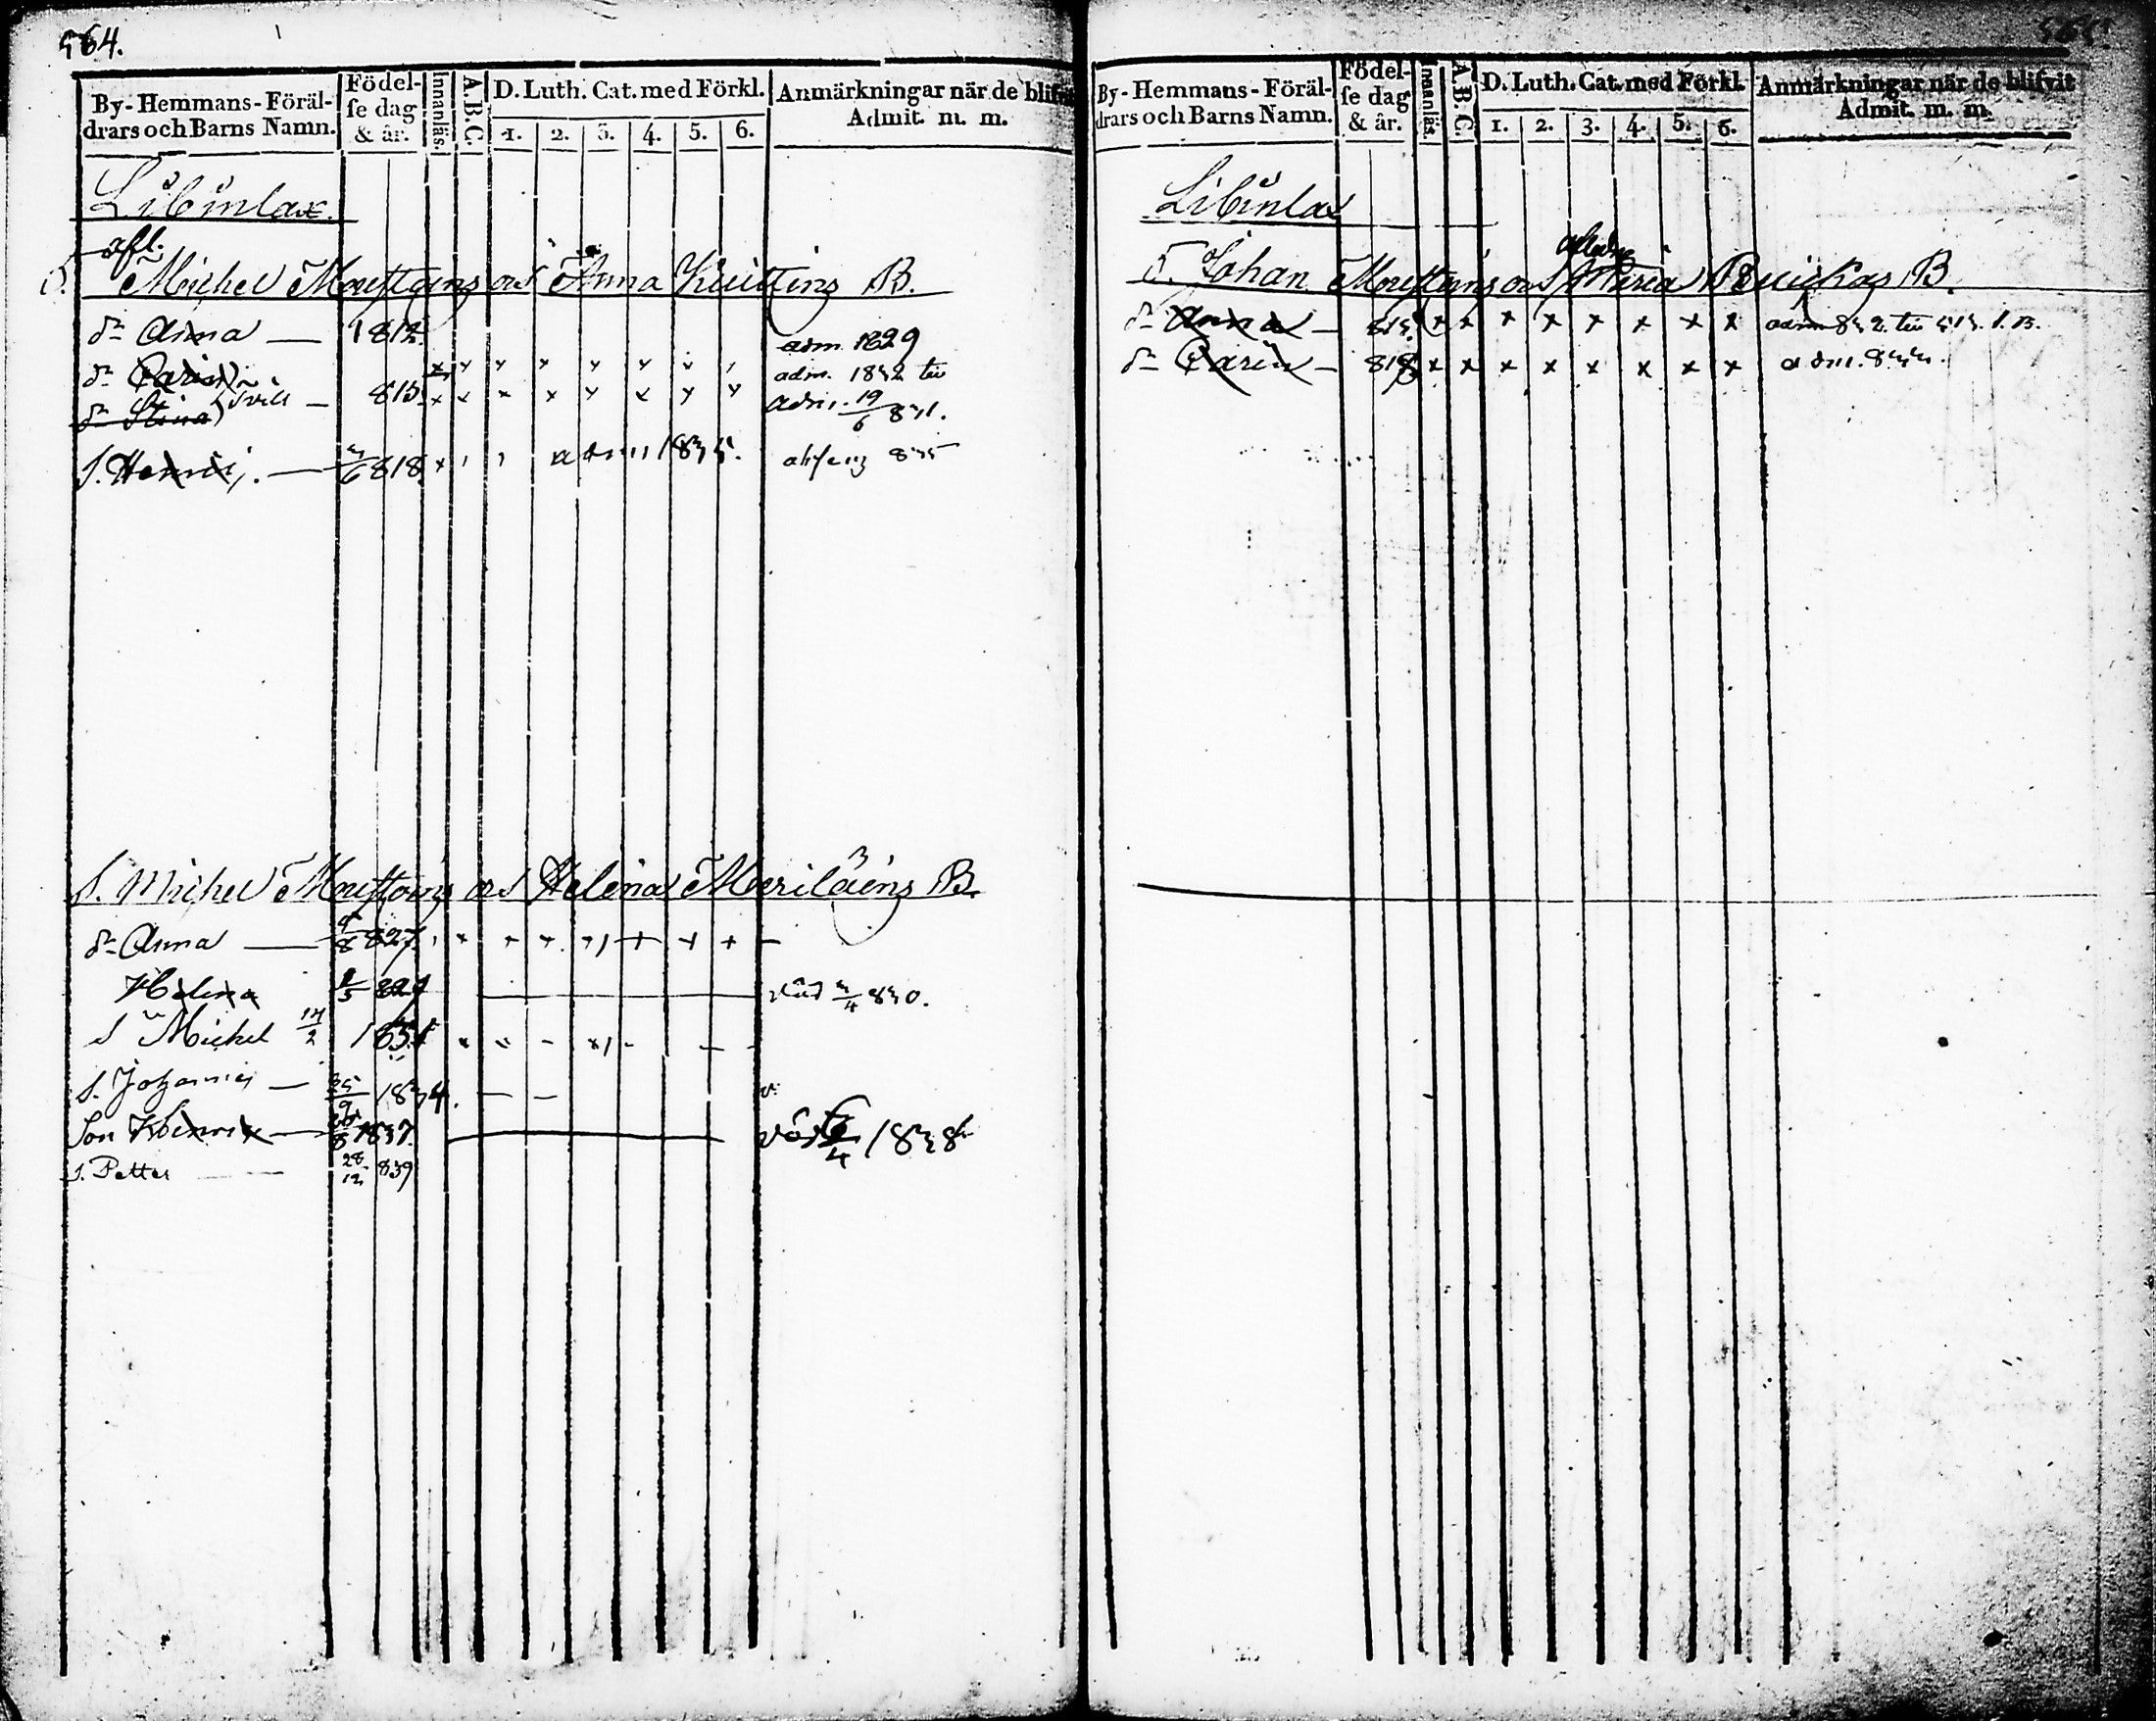 564.
By-Hemmans-Föräl-drars och Barns Namn. Födel-se dag & år. Innanläs. A.B.C. D. Luth. Cat. med Förkl. 1. 2. 3. 4. 5. 6. Anmärkningar när de blifvit Admit. m. m.
Libinlax
afl.
Michel Moustoins och Anna Kuittins B.
dr Anna — 1812. adm. 1829
dr Carin x x x x x x x adm. 1832
dr Stina 815. x x x x x x x x adm. 19/6 831.
S. Henric. — 818. x adm 1835. 835
S. Michel Moustoins och Helena Meriläins B.
dr Anna — 827. x x x x + x +
Helena 829 död 3/4 830.
S Michel 14/2 1831
S. Johannes — 25/9 1834.
Son Henric — 1837. död 6/4 1838
S. Petter — 28/12 839
565.
By-Hemmans-Föräl-drars och Barns Namn. Födel-se dag & år. Innanläs. A.B.C. D. Luth. Cat. med Förkl. 1. 2. 3. 4. 5. 6. Anmärkningar när de blifvit Admit. m. m.
Libinlax
5. Johan Moustoins och Maria B.
dr Anna — 815. x x x x x x x x adm 832
dr Carin — 818 x x x x x x x x adm.